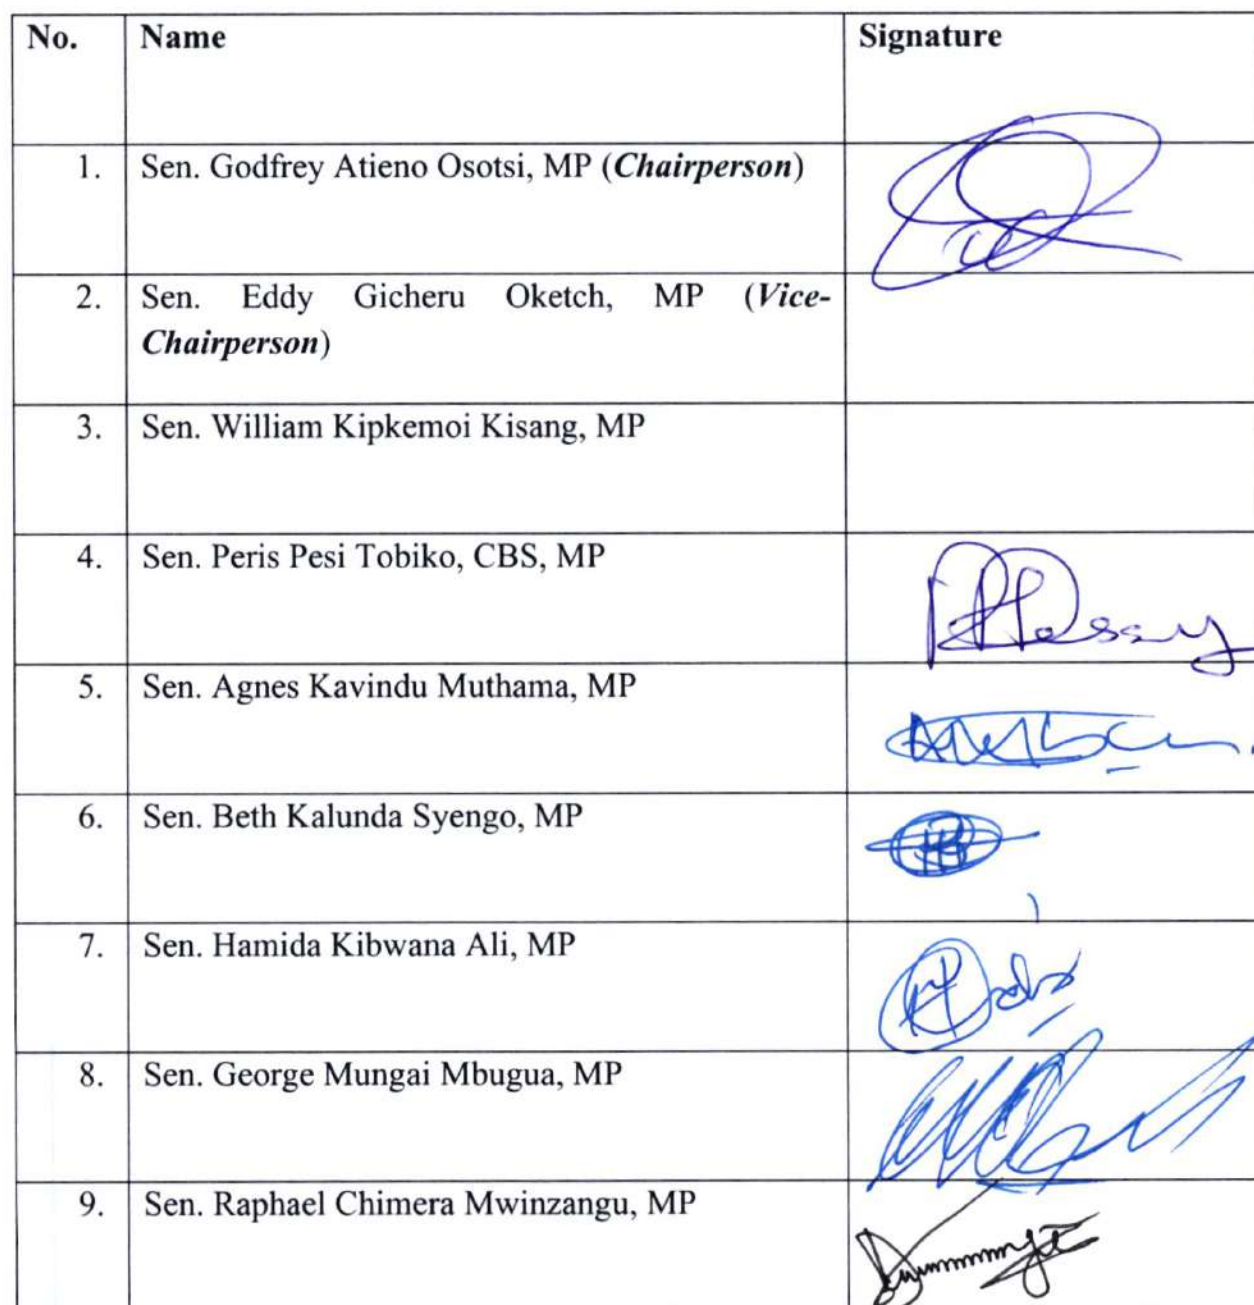 No. Name Signature
1. Sen. Godfrey Atieno Osotsi, MP (Chairperson)
2. Sen. Eddy Gicheru Oketch, MP (Vice-
Chairperson)
3. Sen. William Kipkemoi Kisang, MP
4. Sen. Peris Pesi Tobiko, CBS, MP
5. Sen. Agnes Kavindu Muthama, MP
6. Sen. Beth Kalunda Syengo, MP
7. Sen. Hamida Kibwana Ali, MP
8. Sen. George Mungai Mbugua, MP
9. Sen. Raphael Chimera Mwinzangu, MP